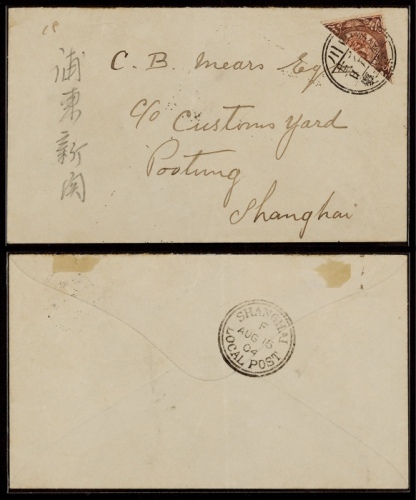 C. B. Mears Esq
c/o Customs Yard
Pootung
Shanghai
浦東新関
SHANGHAI
F
AUG 16
04
LOCAL POST